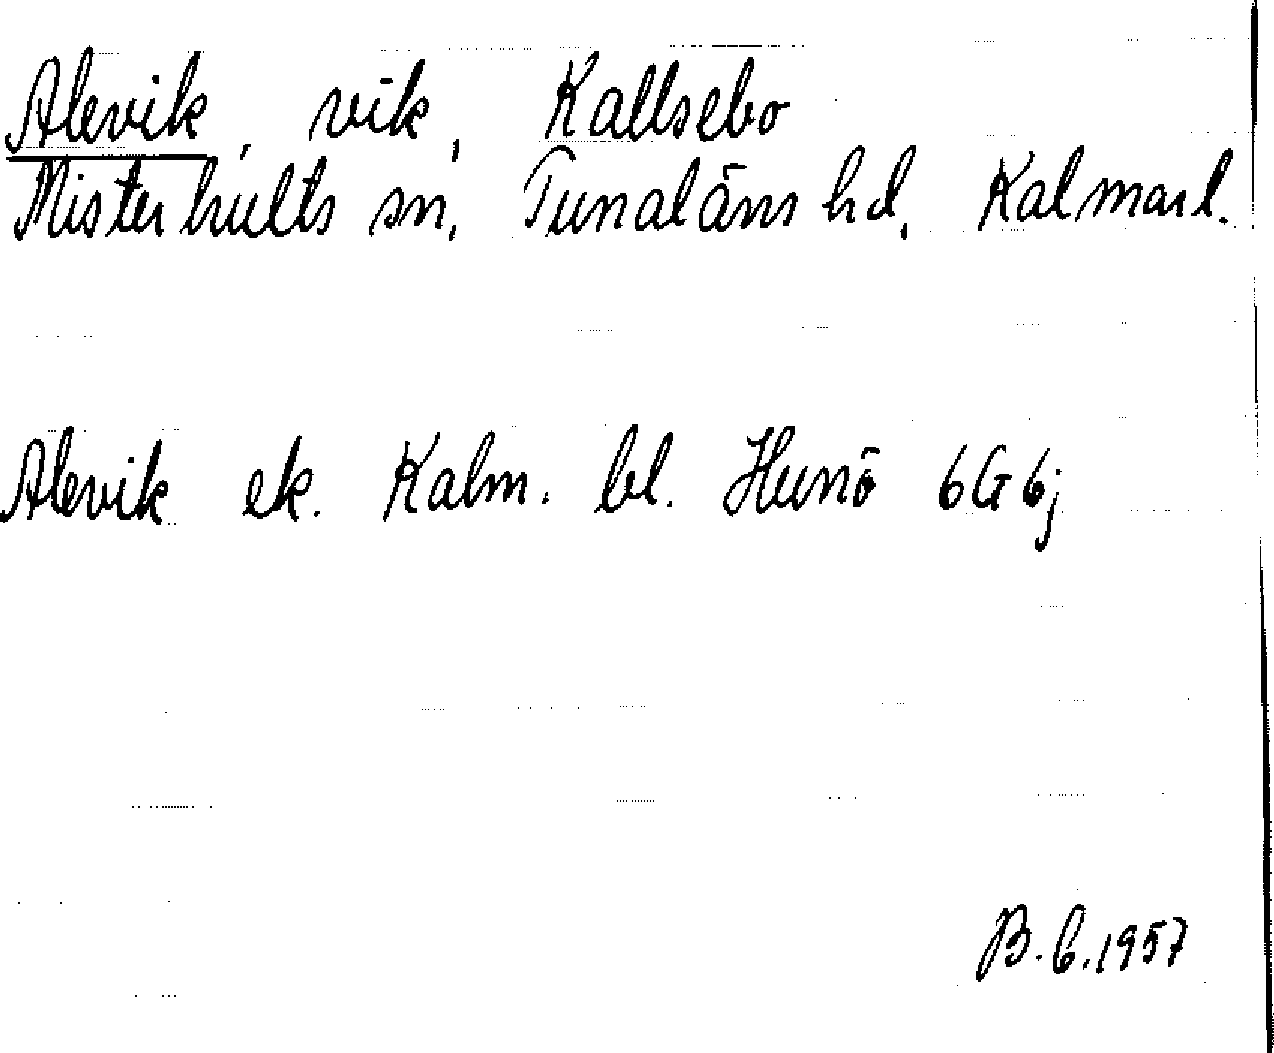 Alevik, vik, Kallsebo
Misterhults sn, Tunaläns hd, Kalmar l.
Alevik ek. Kalm. bl. Hunö 6G 6j
B.G.1957